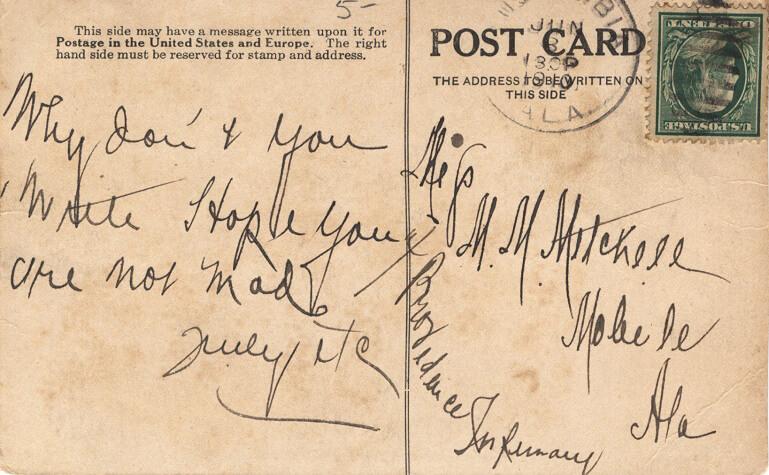 5-
This side may have a message written upon it for
Postage in the United States and Europe. The right
hand side must be reserved for stamp and address.
POST CARD
THE ADDRESS TO BE WRITTEN ON
THIS SIDE
JUN
8
ALA.
U.S. POSTAGE
Why don't you
Write I hope you
are not mad
Truly etc
Miss
M. M. Mitchell
Mobile
Ala
Providence
Infirmary